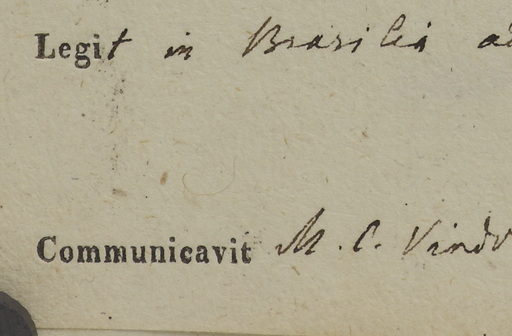 Legit in Brasilia ad
Communicavit M. C. Vindo